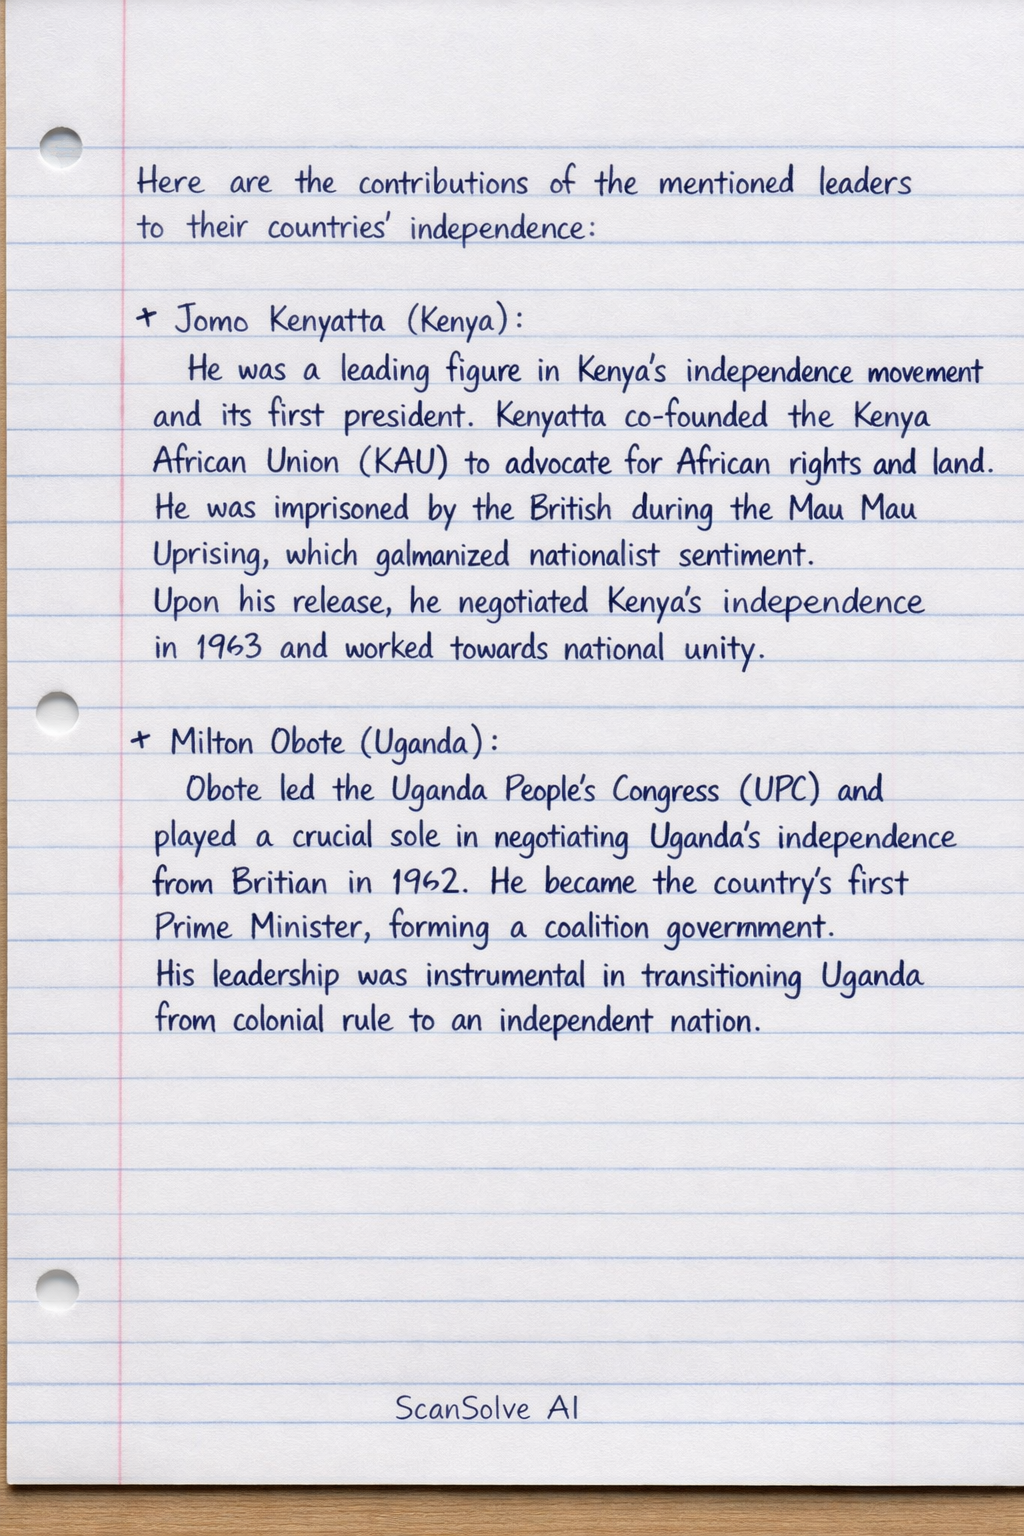 Here are the contributions of the mentioned leaders
to their countries' independence:
+ Jomo Kenyatta (Kenya):
He was a leading figure in Kenya's independence movement
and its first president. Kenyatta co-founded the Kenya
African Union (KAU) to advocate for African rights and land.
He was imprisoned by the British during the Mau Mau
Uprising, which galmanized nationalist sentiment.
Upon his release, he negotiated Kenya's independence
in 1963 and worked towards national unity.
+ Milton Obote (Uganda):
Obote led the Uganda People's Congress (UPC) and
played a crucial sole in negotiating Uganda's independence
from Britian in 1962. He became the country's first
Prime Minister, forming a coalition govermment.
His leadership was instrumental in transitioning Uganda
from colonial rule to an independent nation.
ScanSolve AI